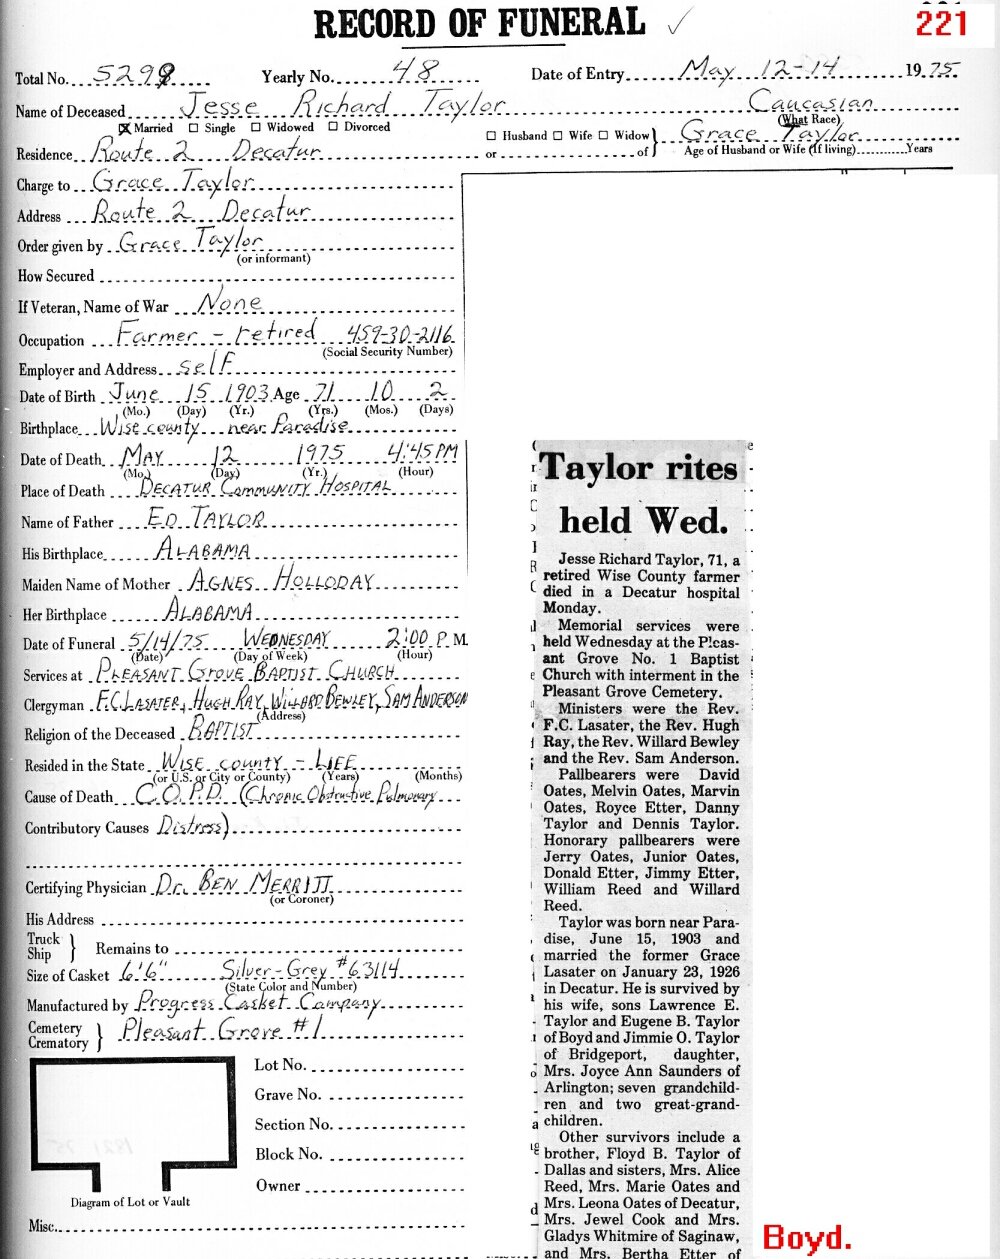 RECORD OF FUNERAL ✓
221
Total No. 5299 Yearly No. 48 Date of Entry May 12-14 1975
Name of Deceased Jesse Richard Taylor Caucasian
(What Race)
☒ Married ☐ Single ☐ Widowed ☐ Divorced
☐ Husband ☐ Wife ☐ Widow } Grace Taylor
Residence Route 2 Decatur or of } Age of Husband or Wife (If living) Years
Charge to Grace Taylor
Address Route 2 Decatur
Order given by Grace Taylor
(or informant)
How Secured
If Veteran, Name of War None
Occupation Farmer - retired 459-30-2116
(Social Security Number)
Employer and Address self
Date of Birth June 15 1903 Age 71 10 2
(Mo.) (Day) (Yr.) (Yrs.) (Mos.) (Days)
Birthplace Wise county near Paradise
Date of Death MAY 12 1975 4:45 PM
(Mo.) (Day) (Yr.) (Hour)
Place of Death DECATUR COMMUNITY HOSPITAL
Name of Father ED TAYLOR
His Birthplace ALABAMA
Maiden Name of Mother AGNES HOLLODAY
Her Birthplace ALABAMA
Date of Funeral 5/14/75 WEDNESDAY 2:00 P.M.
(Date) (Day of Week) (Hour)
Services at PLEASANT GROVE BAPTIST CHURCH
Clergyman F.C. LASATER, HUGH RAY, WILLARD BEWLEY, SAM ANDERSON
(Address)
Religion of the Deceased BAPTIST
Resided in the State WISE COUNTY - LIFE
(or U.S. or City or County) (Years) (Months)
Cause of Death C.O.P.D. (Chronic Obstructive Pulmonary
Contributory Causes Distress)
Certifying Physician Dr. BEN MERRITT
(or Coroner)
His Address
Truck
Ship } Remains to
Size of Casket 6'6" Silver-Grey #63114
(State Color and Number)
Manufactured by Progress Casket Company
Cemetery
Crematory } Pleasant Grove #1
Lot No.
Grave No.
Section No.
Block No.
Owner
Diagram of Lot or Vault
Misc.
Taylor rites
held Wed.
Jesse Richard Taylor, 71, a
retired Wise County farmer
died in a Decatur hospital
Monday.
Memorial services were
held Wednesday at the Pleas-
ant Grove No. 1 Baptist
Church with interment in the
Pleasant Grove Cemetery.
Ministers were the Rev.
F.C. Lasater, the Rev. Hugh
Ray, the Rev. Willard Bewley
and the Rev. Sam Anderson.
Pallbearers were David
Oates, Melvin Oates, Marvin
Oates, Royce Etter, Danny
Taylor and Dennis Taylor.
Honorary pallbearers were
Jerry Oates, Junior Oates,
Donald Etter, Jimmy Etter,
William Reed and Willard
Reed.
Taylor was born near Para-
dise, June 15, 1903 and
married the former Grace
Lasater on January 23, 1926
in Decatur. He is survived by
his wife, sons Lawrence E.
Taylor and Eugene B. Taylor
of Boyd and Jimmie O. Taylor
of Bridgeport, daughter,
Mrs. Joyce Ann Saunders of
Arlington; seven grandchild-
ren and two great-grand-
children.
Other survivors include a
brother, Floyd B. Taylor of
Dallas and sisters, Mrs. Alice
Reed, Mrs. Marie Oates and
Mrs. Leona Oates of Decatur,
Mrs. Jewel Cook and Mrs.
Gladys Whitmire of Saginaw,
and Mrs. Bertha Etter of
Boyd.